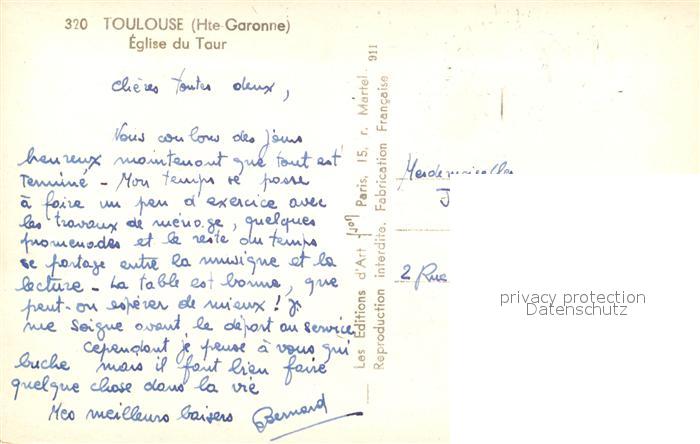 320 TOULOUSE (Hte-Garonne)
Église du Taur
chères toutes deux,
Nous coulons des jours
heureux maintenant que tout est
terminé - Mon temps se passe
à faire un peu d'exercice avec
les travaux de ménage, quelques
promenades et le reste du temps
se partage entre la musique et la
lecture - La table est bonne, que
peut-on espérer de mieux ! Je
me soigne avant le départ au service
cependant je pense à vous qui
buche mais il faut bien faire
quelque chose dans la vie
Mes meilleurs baisers Bernard
Les Editions d'Art Paris, 15, r. Martel 911
Reproduction interdite. Fabrication Française
Mesdemoiselles
J
2 Rue
privacy protection
Datenschutz